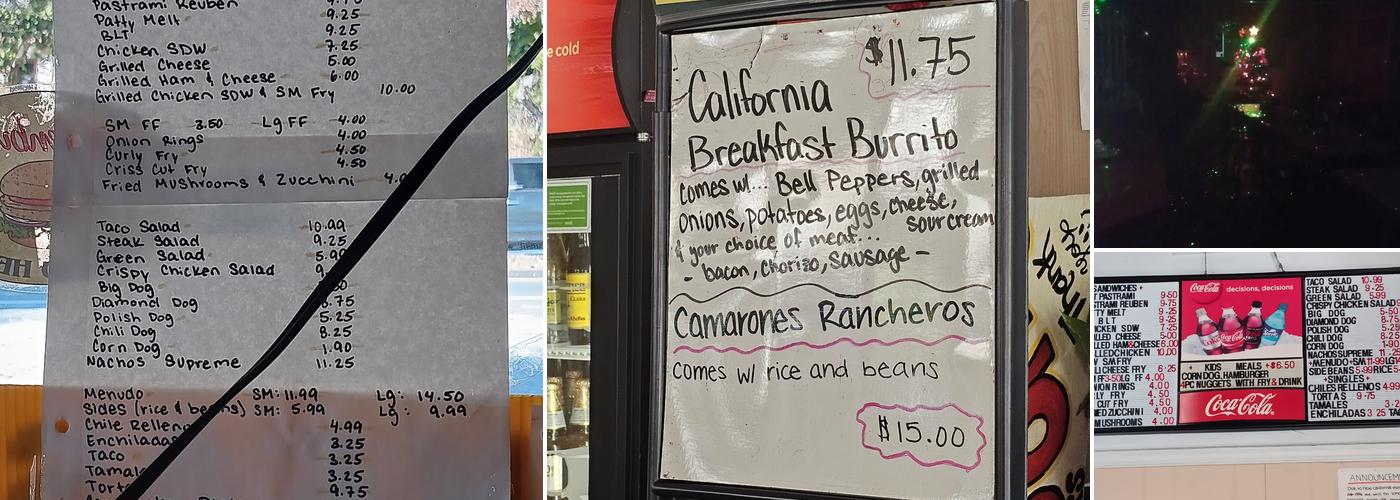 Pastrami Reuben
Patty Melt 9.25
BLT 9.25
Chicken SDW 7.25
Grilled Cheese 5.00
Grilled Ham & Cheese 6.00
Grilled Chicken SDW & SM Fry 10.00
SM FF 3.50 Lg FF 4.00
Onion Rings 4.00
Curly Fry 4.50
Criss Cut Fry 4.50
Fried Mushrooms & Zucchini
Taco Salad 10.99
Steak Salad 9.25
Green Salad 5.99
Crispy Chicken Salad
Big Dog
Diamond Dog 8.75
Polish Dog 5.25
Chili Dog 8.25
Corn Dog 1.90
Nachos Supreme 11.25
Menudo SM: 11.99 Lg: 14.50
Sides (rice & beans) SM: 5.99 Lg: 9.99
Chile Relleno 4.99
Enchiladas 3.25
Taco 3.25
3.25
9.75
e cold
$11.75
California
Breakfast Burrito
comes w/... Bell Peppers, grilled
onions, potatoes, eggs, cheese,
sour cream
& your choice of meat...
- bacon, chorizo, sausage -
Camarones Rancheros
comes w/ rice and beans
$15.00
SANDWICHES
PASTRAMI 9.50
STRAMI REUBEN 9.75
TY MELT 9.25
BLT 9.25
CKEN SDW 7.25
LLED CHEESE 5.00
LLED HAM&CHEESE 6.00
LLEDCHICKEN 10.00
W SM FRY
LI CHEESE FRY 6.25
FF 3.50 LG FF 4.00
ON RINGS 4.00
LY FRY 4.50
CUT FRY 4.50
IED ZUCCHINI 4.00
MUSHROOMS 4.00
Coca-Cola decisions, decisions
KIDS MEALS $6.50
CORN DOG,HAMBURGER
4PC NUGGETS WITH FRY & DRINK
Coca-Cola
TACO SALAD 10.99
STEAK SALAD 9.25
GREEN SALAD 5.99
CRISPY CHICKEN SALAD
BIG DOG 5.50
DIAMOND DOG 8.75
POLISH DOG 5.25
CHILI DOG 8.25
CORN DOG 1.90
NACHOS SUPREME 11.2
MENUDO SM 11.99 LG 14
SIDE BEANS 5.99 RICE 5
SINGLES
CHILES RELLENOS 4.99
TORTAS 9.75
TAMALES 3.2
ENCHILADAS 3.25 TAC
ANNOUNCEM